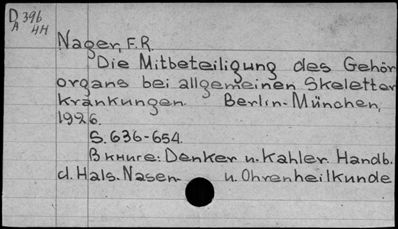 D 396
A 4H
Nager, F.R.
Die Mitbeteiligung des Gehör
organs bei allgemeinen Skeletter
krankungen. Berlin-München,
1926.
S. 636-654.
В книге: Denker u. Kahler. Handb.
d. Hals- Nasen- u. Ohrenheilkunde